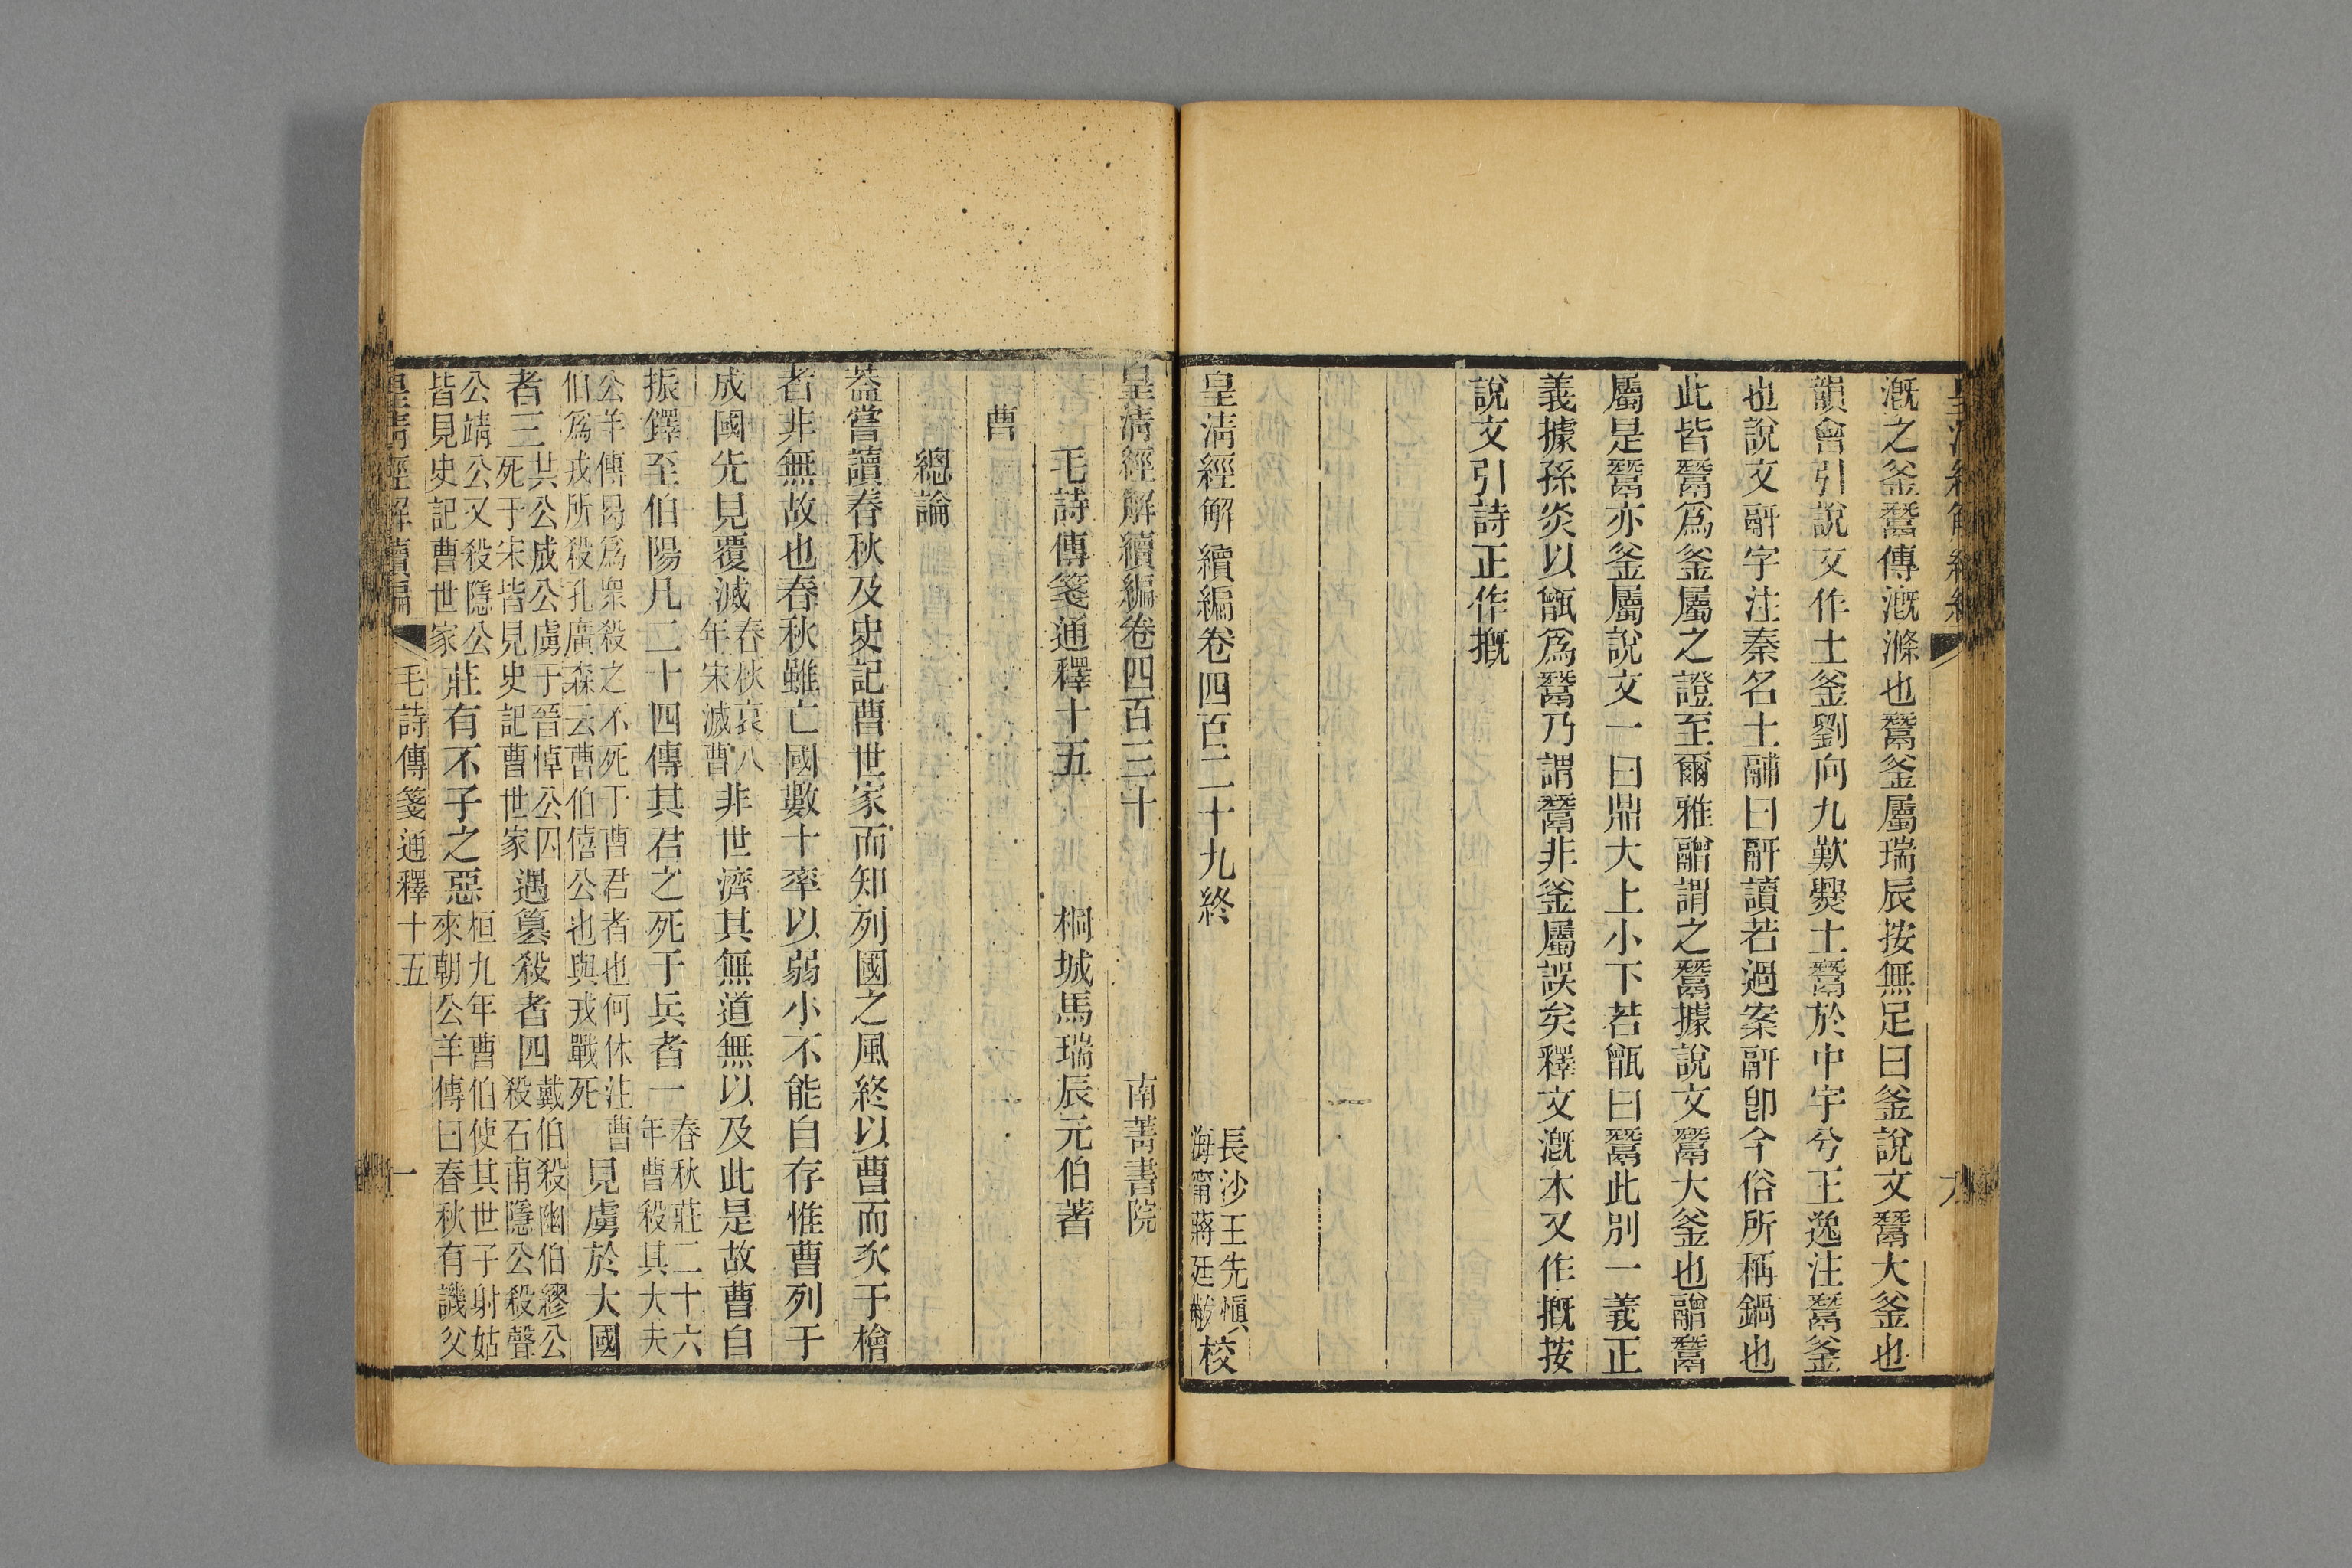 溉之釜鬵傳溉滌也鬵釜屬瑞辰按無足曰釜說文鬵大釜也
韻會引說文作土釜劉向九歎爨土鬵於中宇兮王逸注鬵釜
也說文鬴字注秦名土鬴曰䰛讀若過案䰛卽今俗所稱鍋也
此皆鬵爲釜屬之證至爾雅䰝謂之鬵據說文鬵大釜也䰝鬵
屬是鬵亦釜屬說文一曰鼎大上小下若甑曰鬵此別一義正
義據孫炎以甑爲鬵乃謂鬵非釜屬誤矣釋文溉本又作摡按
說文引詩正作摡
皇淸經解續編卷四百二十九終
長沙王先愼
海甯蔣廷黻校
皇淸經解續編卷四百三十
南菁書院
毛詩傳箋通釋十五
桐城馬瑞辰元伯著
曹
總論
葢嘗讀春秋及史記曹世家而知列國之風終以曹而次于檜
者非無故也春秋雖亡國數十率以弱小不能自存惟曹列于
成國先見覆滅春秋哀八年宋滅曹非世濟其無道無以及此是故曹自
振鐸至伯陽凡二十四傳其君之死于兵者一春秋莊二十六年曹殺其大夫
公羊傳曷爲眾殺之不死于曹君者也何休注曹伯爲戎所殺孔廣森云曹伯僖公也與戎戰死見虜於大國
者三共公成公虜于晉悼公囚死于宋皆見史記曹世家遇篡殺者四戴伯殺幽伯繆公殺石甫隱公殺聲
公靖公又殺隱公皆見史記曹世家莊有不子之惡桓九年曹伯使其世子射姑來朝公羊傳曰春秋有譏父
皇淸經解續編
毛詩傳箋通釋十五
一